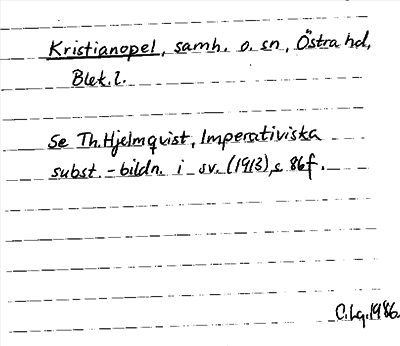 Kristianopel, samh. o. sn, Östra hd,
Blek. l.
Se Th. Hjelmqvist, Imperativiska
subst.-bildn. i sv. (1913), s. 86 f.
C. Lg. 1986.